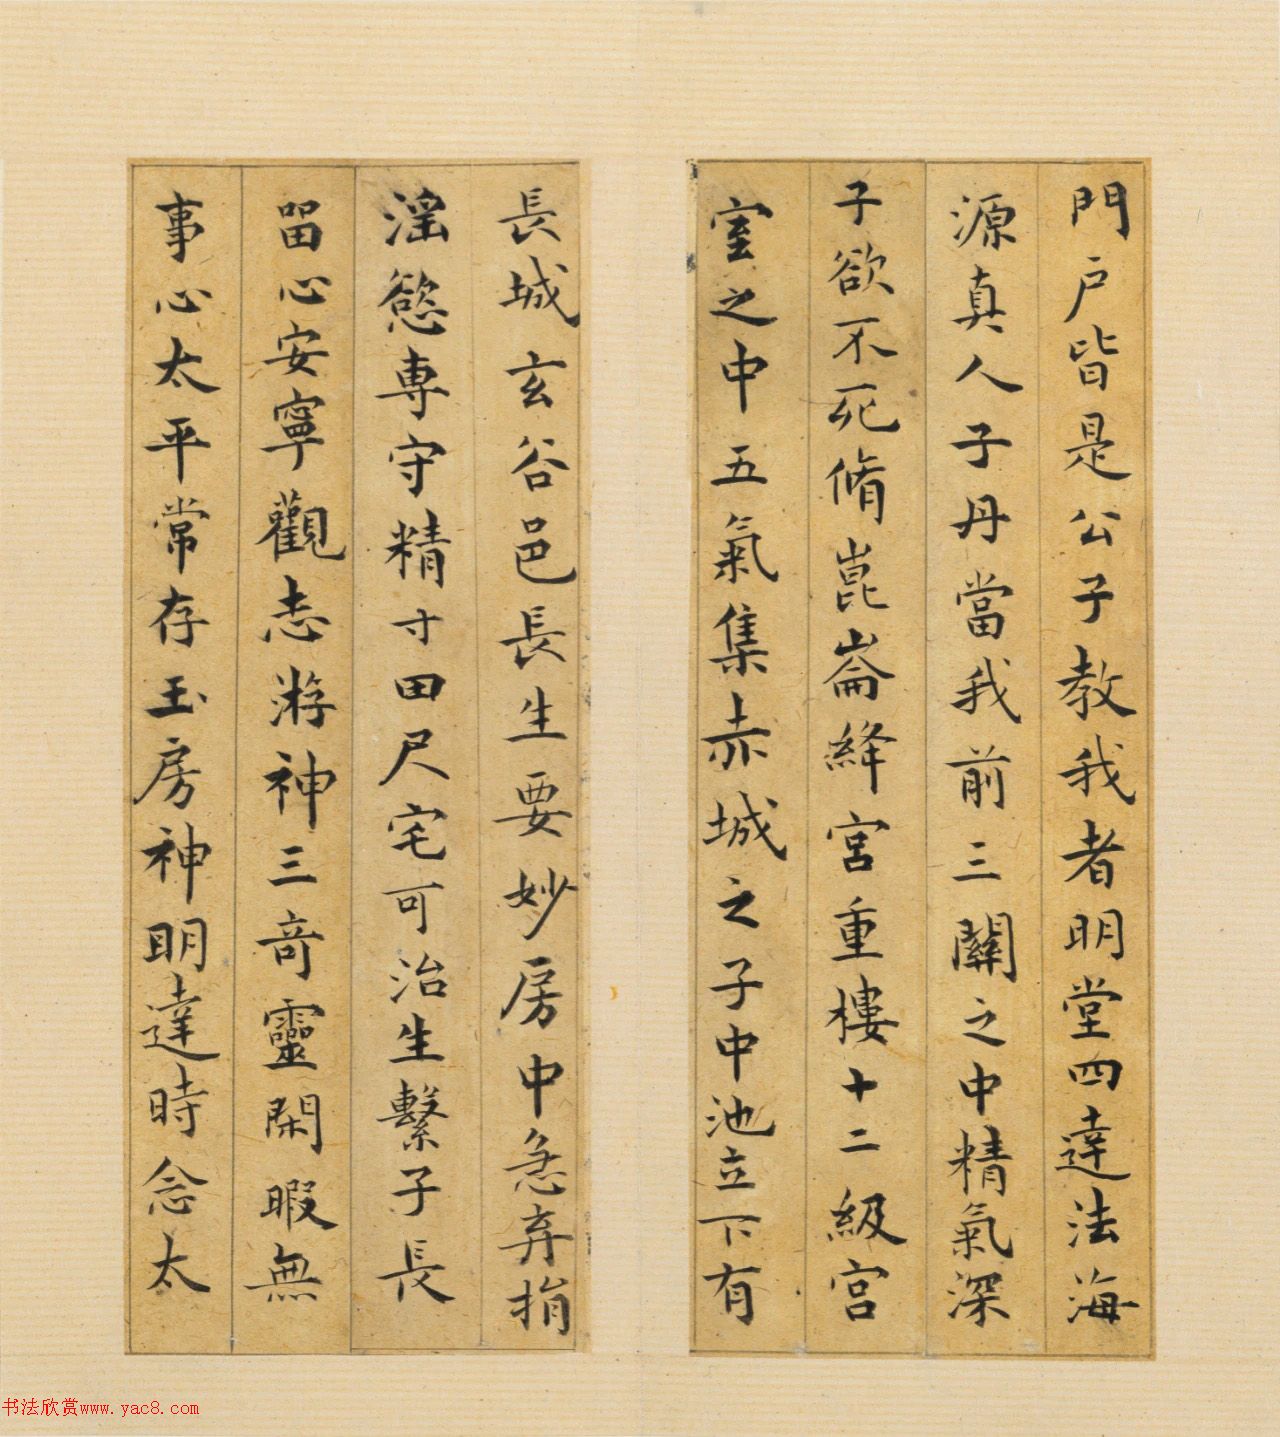 門户皆是公子教我者明堂四達法海
源真人子丹當我前三關之中精氣深
子欲不死脩崑崙絳宮重樓十二級宮
室之中五氣集赤城之子中池立下有
長城玄谷邑長生要妙房中急弃捐
淫慾專守精寸田尺宅可治生繫子長
留心安寧觀志游神三奇靈閑暇無
事心太平常存玉房神明達時念太
书法欣赏www.yac8.com